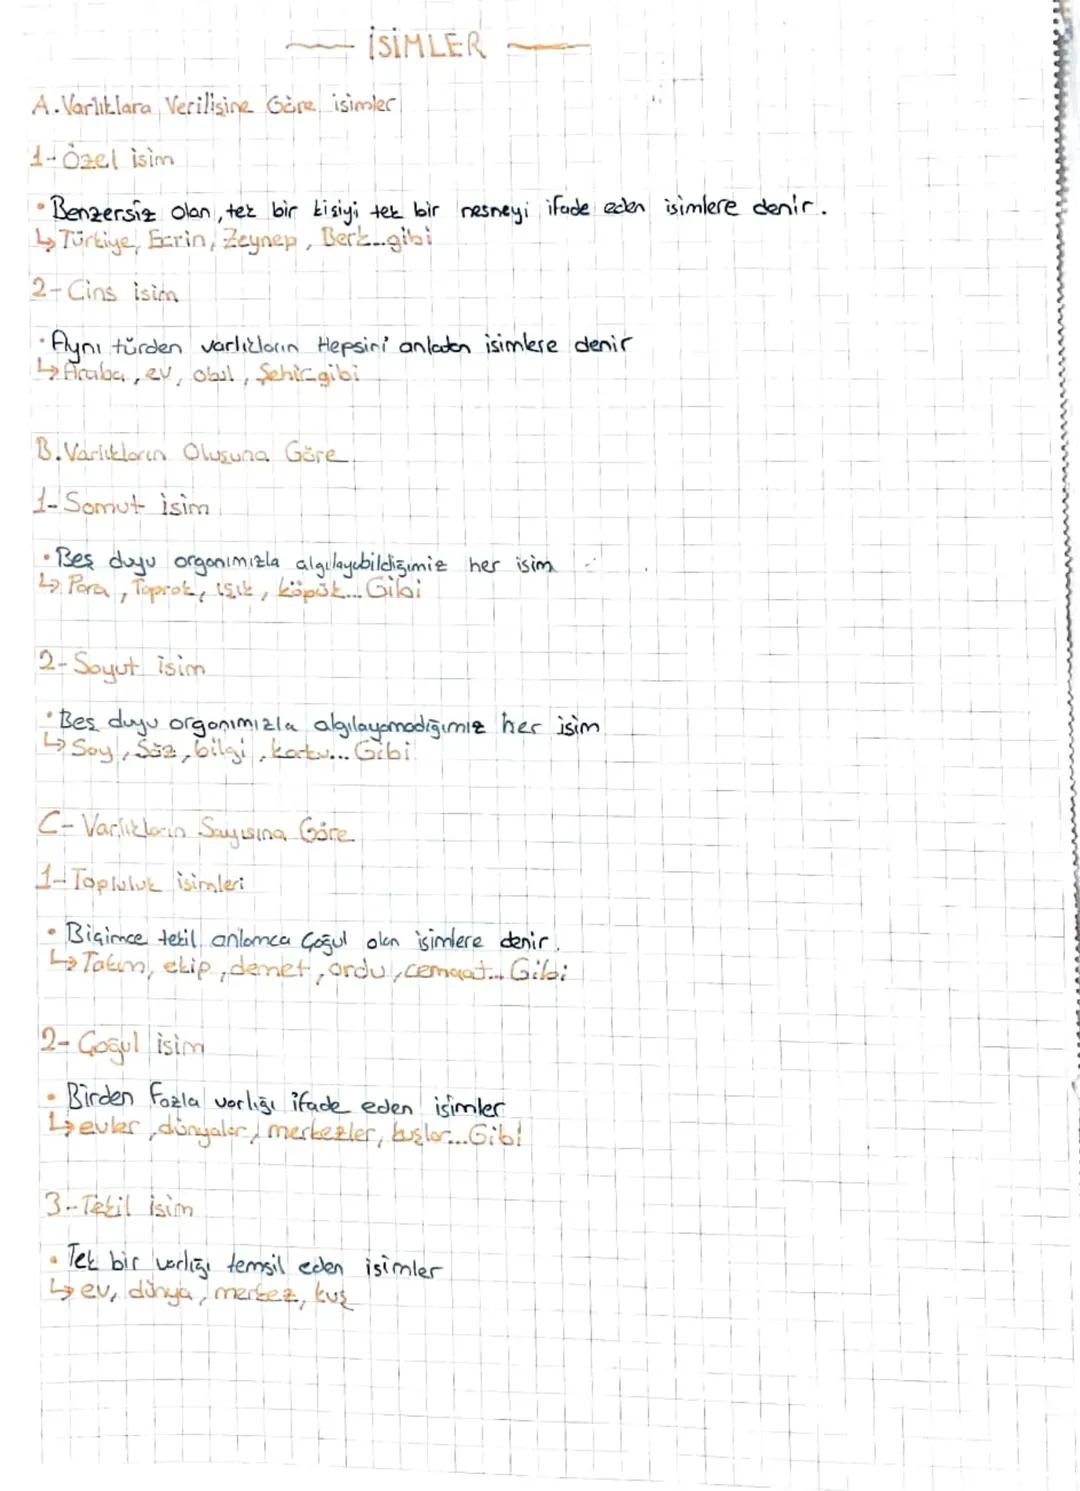 İSİMLER
A. Varlıklara Verilişine Göre isimler
1- Özel isim
• Benzersiz olan, tek bir kişiyi tek bir nesneyi ifade eden isimlere denir.
↳ Türkiye, Ecrin, Zeynep, Berk...gibi
2- Cins isim
• Aynı türden varlıkların Hepsini anlatan isimlere denir
↳ Araba, ev, okul, Şehir gibi
B. Varlıkların Oluşuna Göre
1- Somut isim
• Beş duyu organımızla algılayabildiğimiz her isim
↳ Para, Toprak, ışık, köpük... Gibi
2- Soyut isim
• Beş duyu organımızla algılayamadığımız her isim
↳ Soy, Söz, bilgi, korku... Gibi
C- Varlıkların Sayısına Göre
1- Topluluk isimleri
• Biçimce tekil anlamca Çoğul olan isimlere denir.
↳ Takım, ekip, demet, ordu, cemaat... Gibi
2- Çoğul isim
• Birden Fazla varlığı ifade eden isimler
↳ evler, dünyalar, merkezler, kuşlar... Gibi
3- Tekil isim
• Tek bir varlığı temsil eden isimler
↳ ev, dünya, merkez, kuş